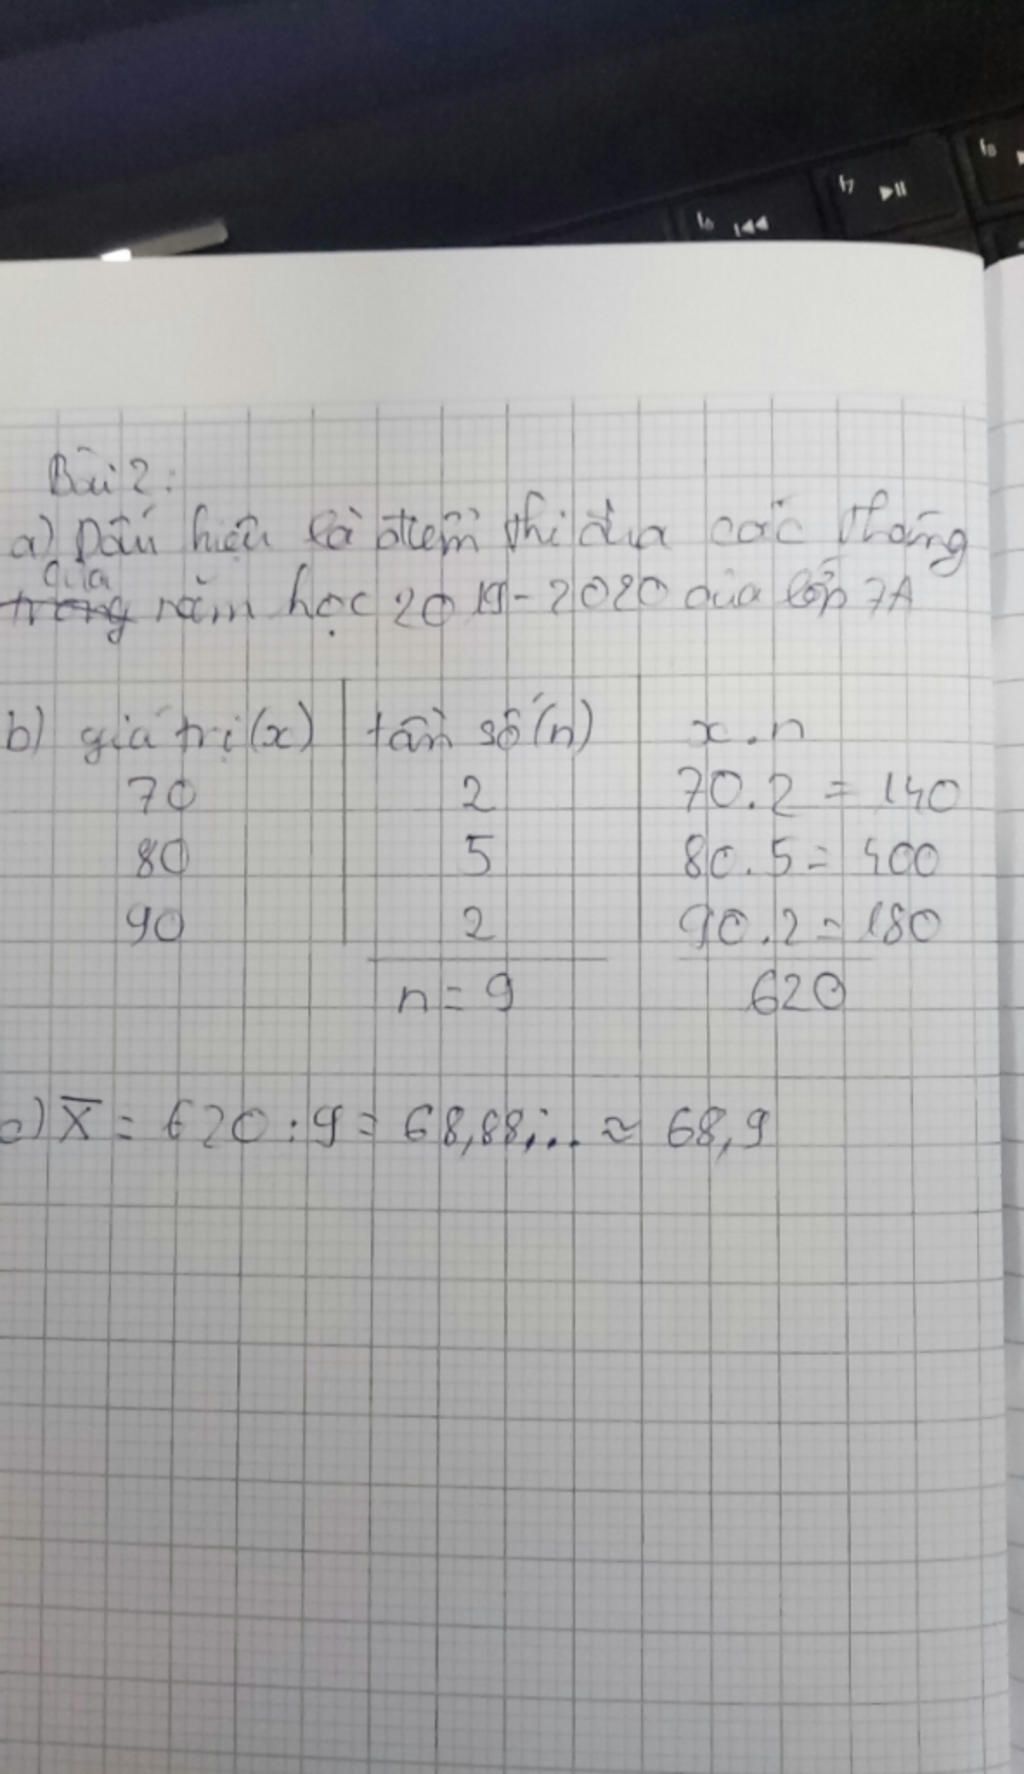 f6 f7 f8
Bài 2:
a) Dấu hiệu là điểm thi đua các tháng
của
trong năm học 2019-2020 của lớp 7A
b) giá trị (x) tần số (n) x.n
70 2 70.2 = 140
80 5 80.5 = 400
90 2 90.2 = 180
n = 9 620
c) X̅ = 620 : 9 = 68,88... ≈ 68,9